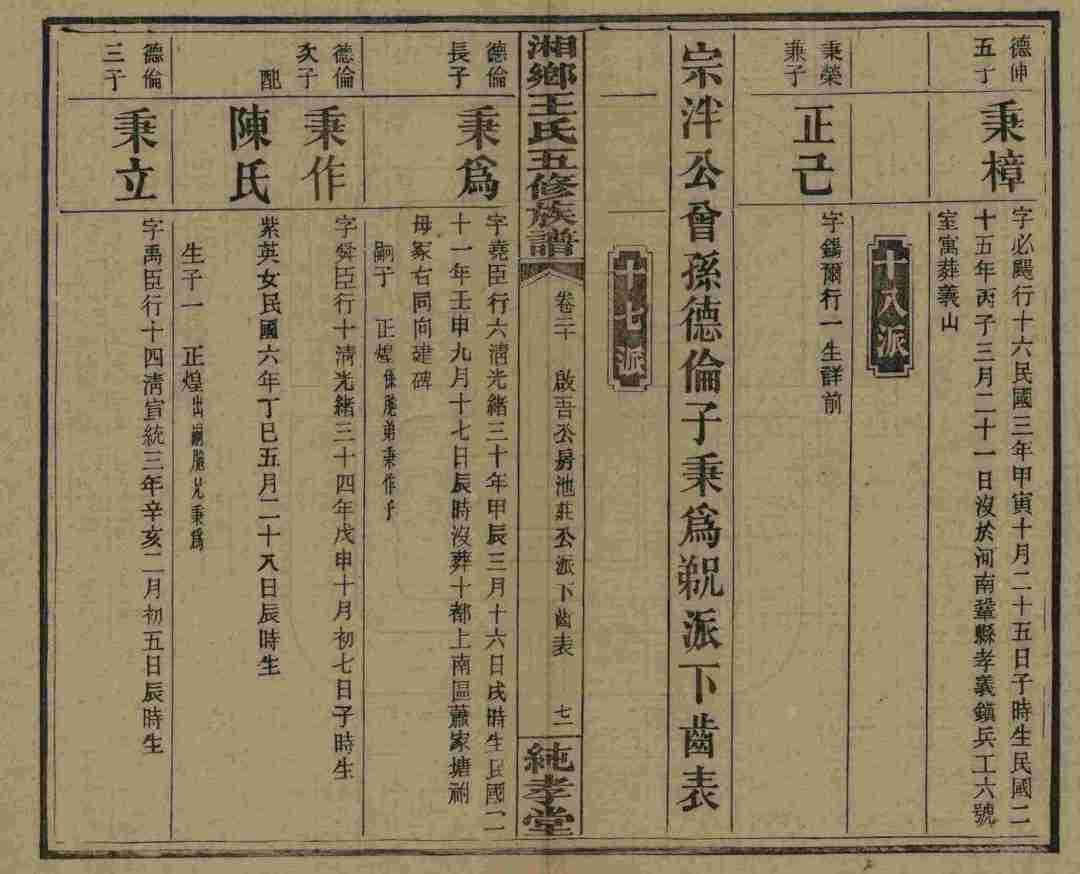 德伸
五丁
秉樟
字必颺行十六民國三年甲寅十月二十五日子時生民國二
十五年丙子三月二十一日沒於河南鞏縣孝義鎮兵工六號
室寓葬義山
十八派
秉榮
兼子
正己
字錫爾行一生詳前
宗泮公曾孫德倫子秉爲覜派下齒表
十七派
湘鄉王氏五修族譜
卷二十
啟吾公房池莊公派下齒表
七二
純孝堂
德倫
長子
秉爲
字堯臣行六清光緒三十年甲辰三月十六日戌時生民國二
十一年壬申九月十七日辰時沒葬十都上南區蕭家塘祔
母冢右同向建碑
嗣子 正煌係胞弟秉作子
德倫
次子
秉作
字舜臣行十清光緒三十四年戊申十月初七日子時生
配
陳氏
紫英女民國六年丁巳五月二十八日辰時生
生子一 正煌出嗣胞兄秉爲
德倫
三子
秉立
字禹臣行十四清宣統三年辛亥二月初五日辰時生